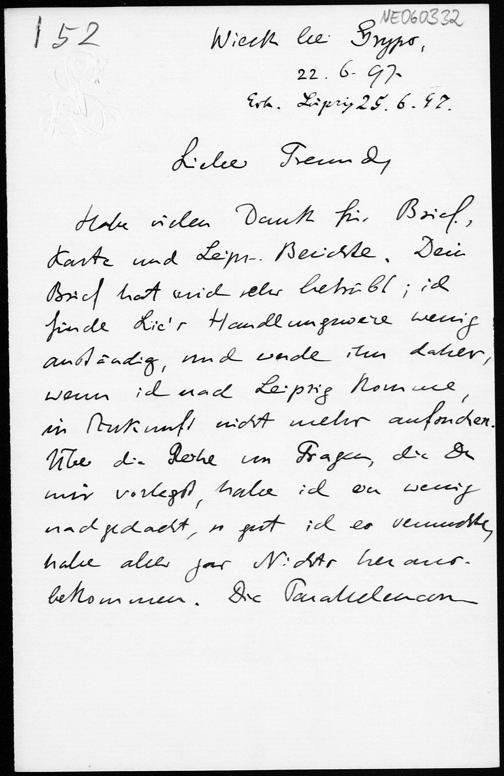 152
NE060332
Wieck bei Gryps,
22. 6. 97.
Erh. Leipzig 25. 6. 97.
Lieber Freund,
Habe vielen Dank für Brief,
Karte und Leipz. Berichte. Dein
Brief hat mich sehr betrübt; ich
finde Lie's Handlungsweise wenig
anständig, und werde ihn daher,
wenn ich nach Leipzig komme,
in Zukunft nicht mehr aufsuchen.
Über die Reihe von Fragen, die Du
mir vorlegst, habe ich ein wenig
nachgedacht, so gut ich es vermochte,
habe aber gar Nichts heraus-
bekommen. Die